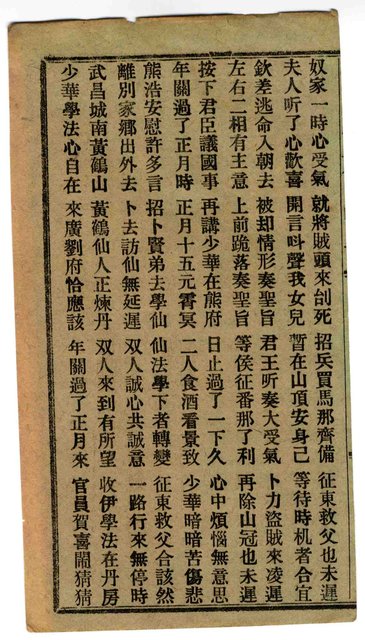 奴家一時心受氣 就將賊頭來刣死 招兵買馬那齊備 征東救父也未遲
夫人听了心歡喜 開言叫聲我女兒 暫在山頂安身己 等待時机者合宜
欽差逃命入朝去 被却情形奏聖旨 君王听奏大受氣 卜力盜賊來凌遲
左右二相有主意 上前跪落奏聖旨 等侯征番那了利 再除山冠也未遲
按下君臣議國事 再講少華在熊府 日止過了一下久 心中煩惱無意思
年關過了正月時 正月十五元霄冥 二人食酒看景致 少華暗暗苦傷悲
熊浩安慰許多言 招卜賢弟去學仙 仙法學下者轉變 征東救父合該然
離別家鄉出外去 卜去訪仙無延遲 双人誠心共誠意 一路行來無停時
武昌城南黃鶴山 黃鶴仙人正煉丹 双人來到有所望 收伊學法在丹房
少華學法心自在 來廣劉府恰應該 年關過了正月來 官員賀喜鬧猜猜